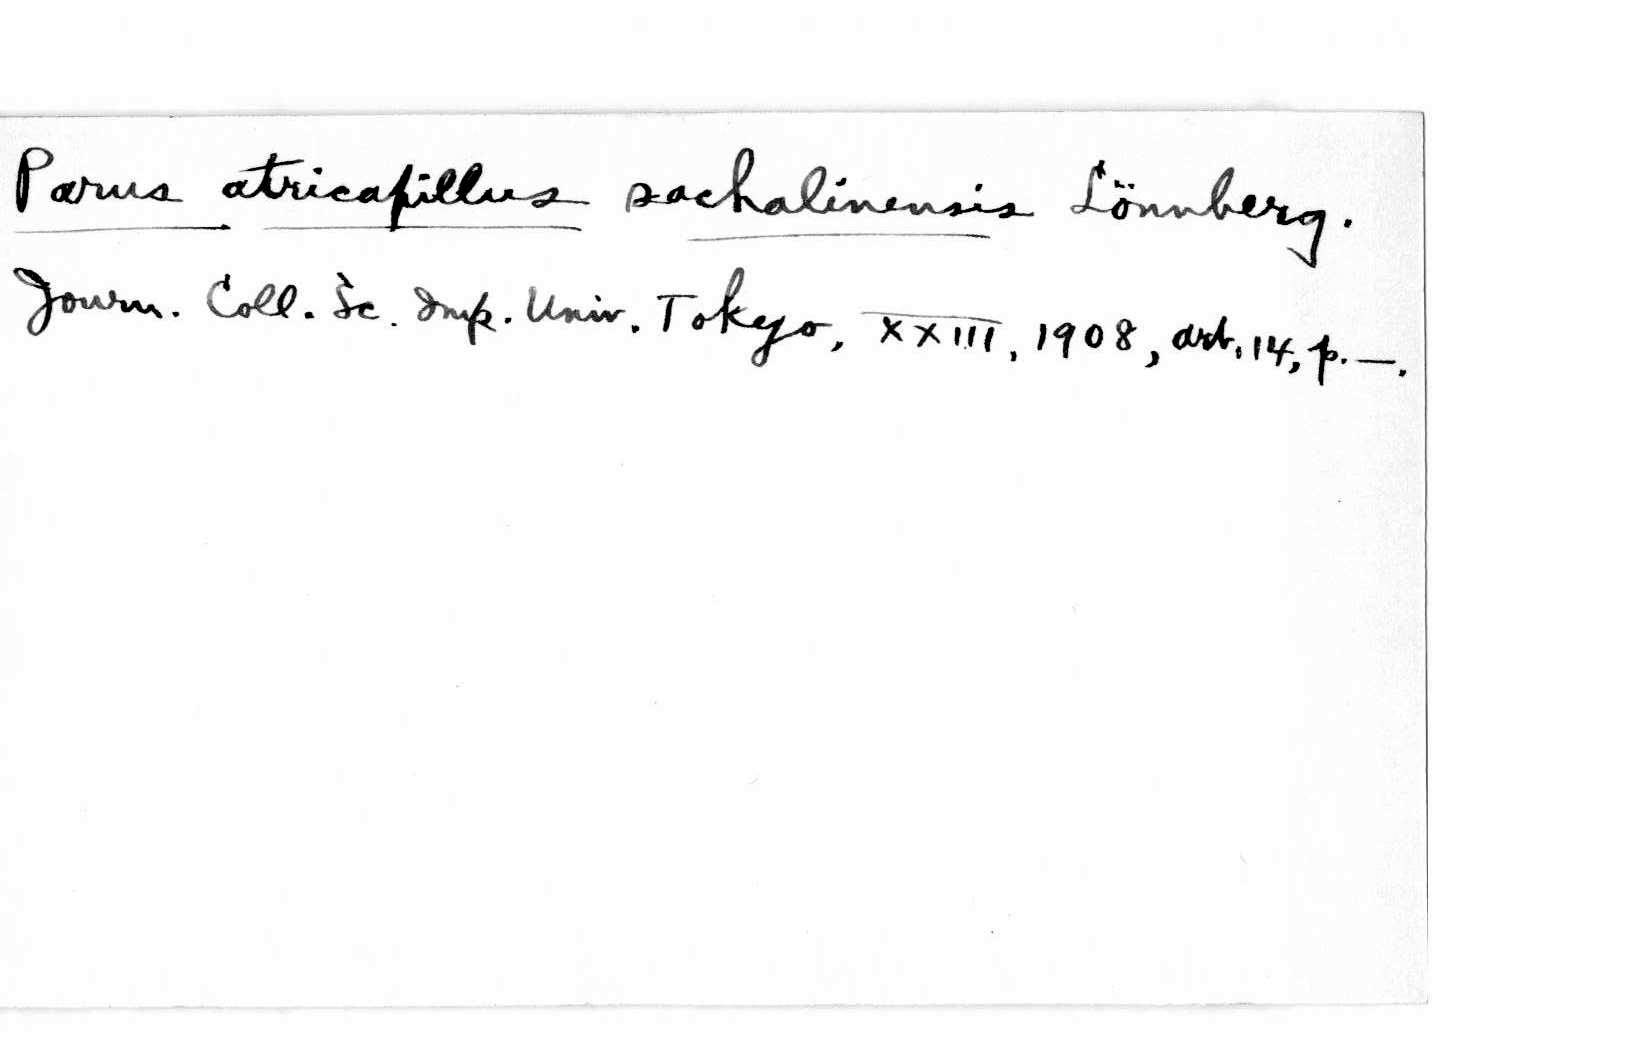 Parus atricapillus sachalinensis Lönnberg.
Journ. Coll. Sc. Imp. Univ. Tokyo, XXIII, 1908, art. 14, p. —.